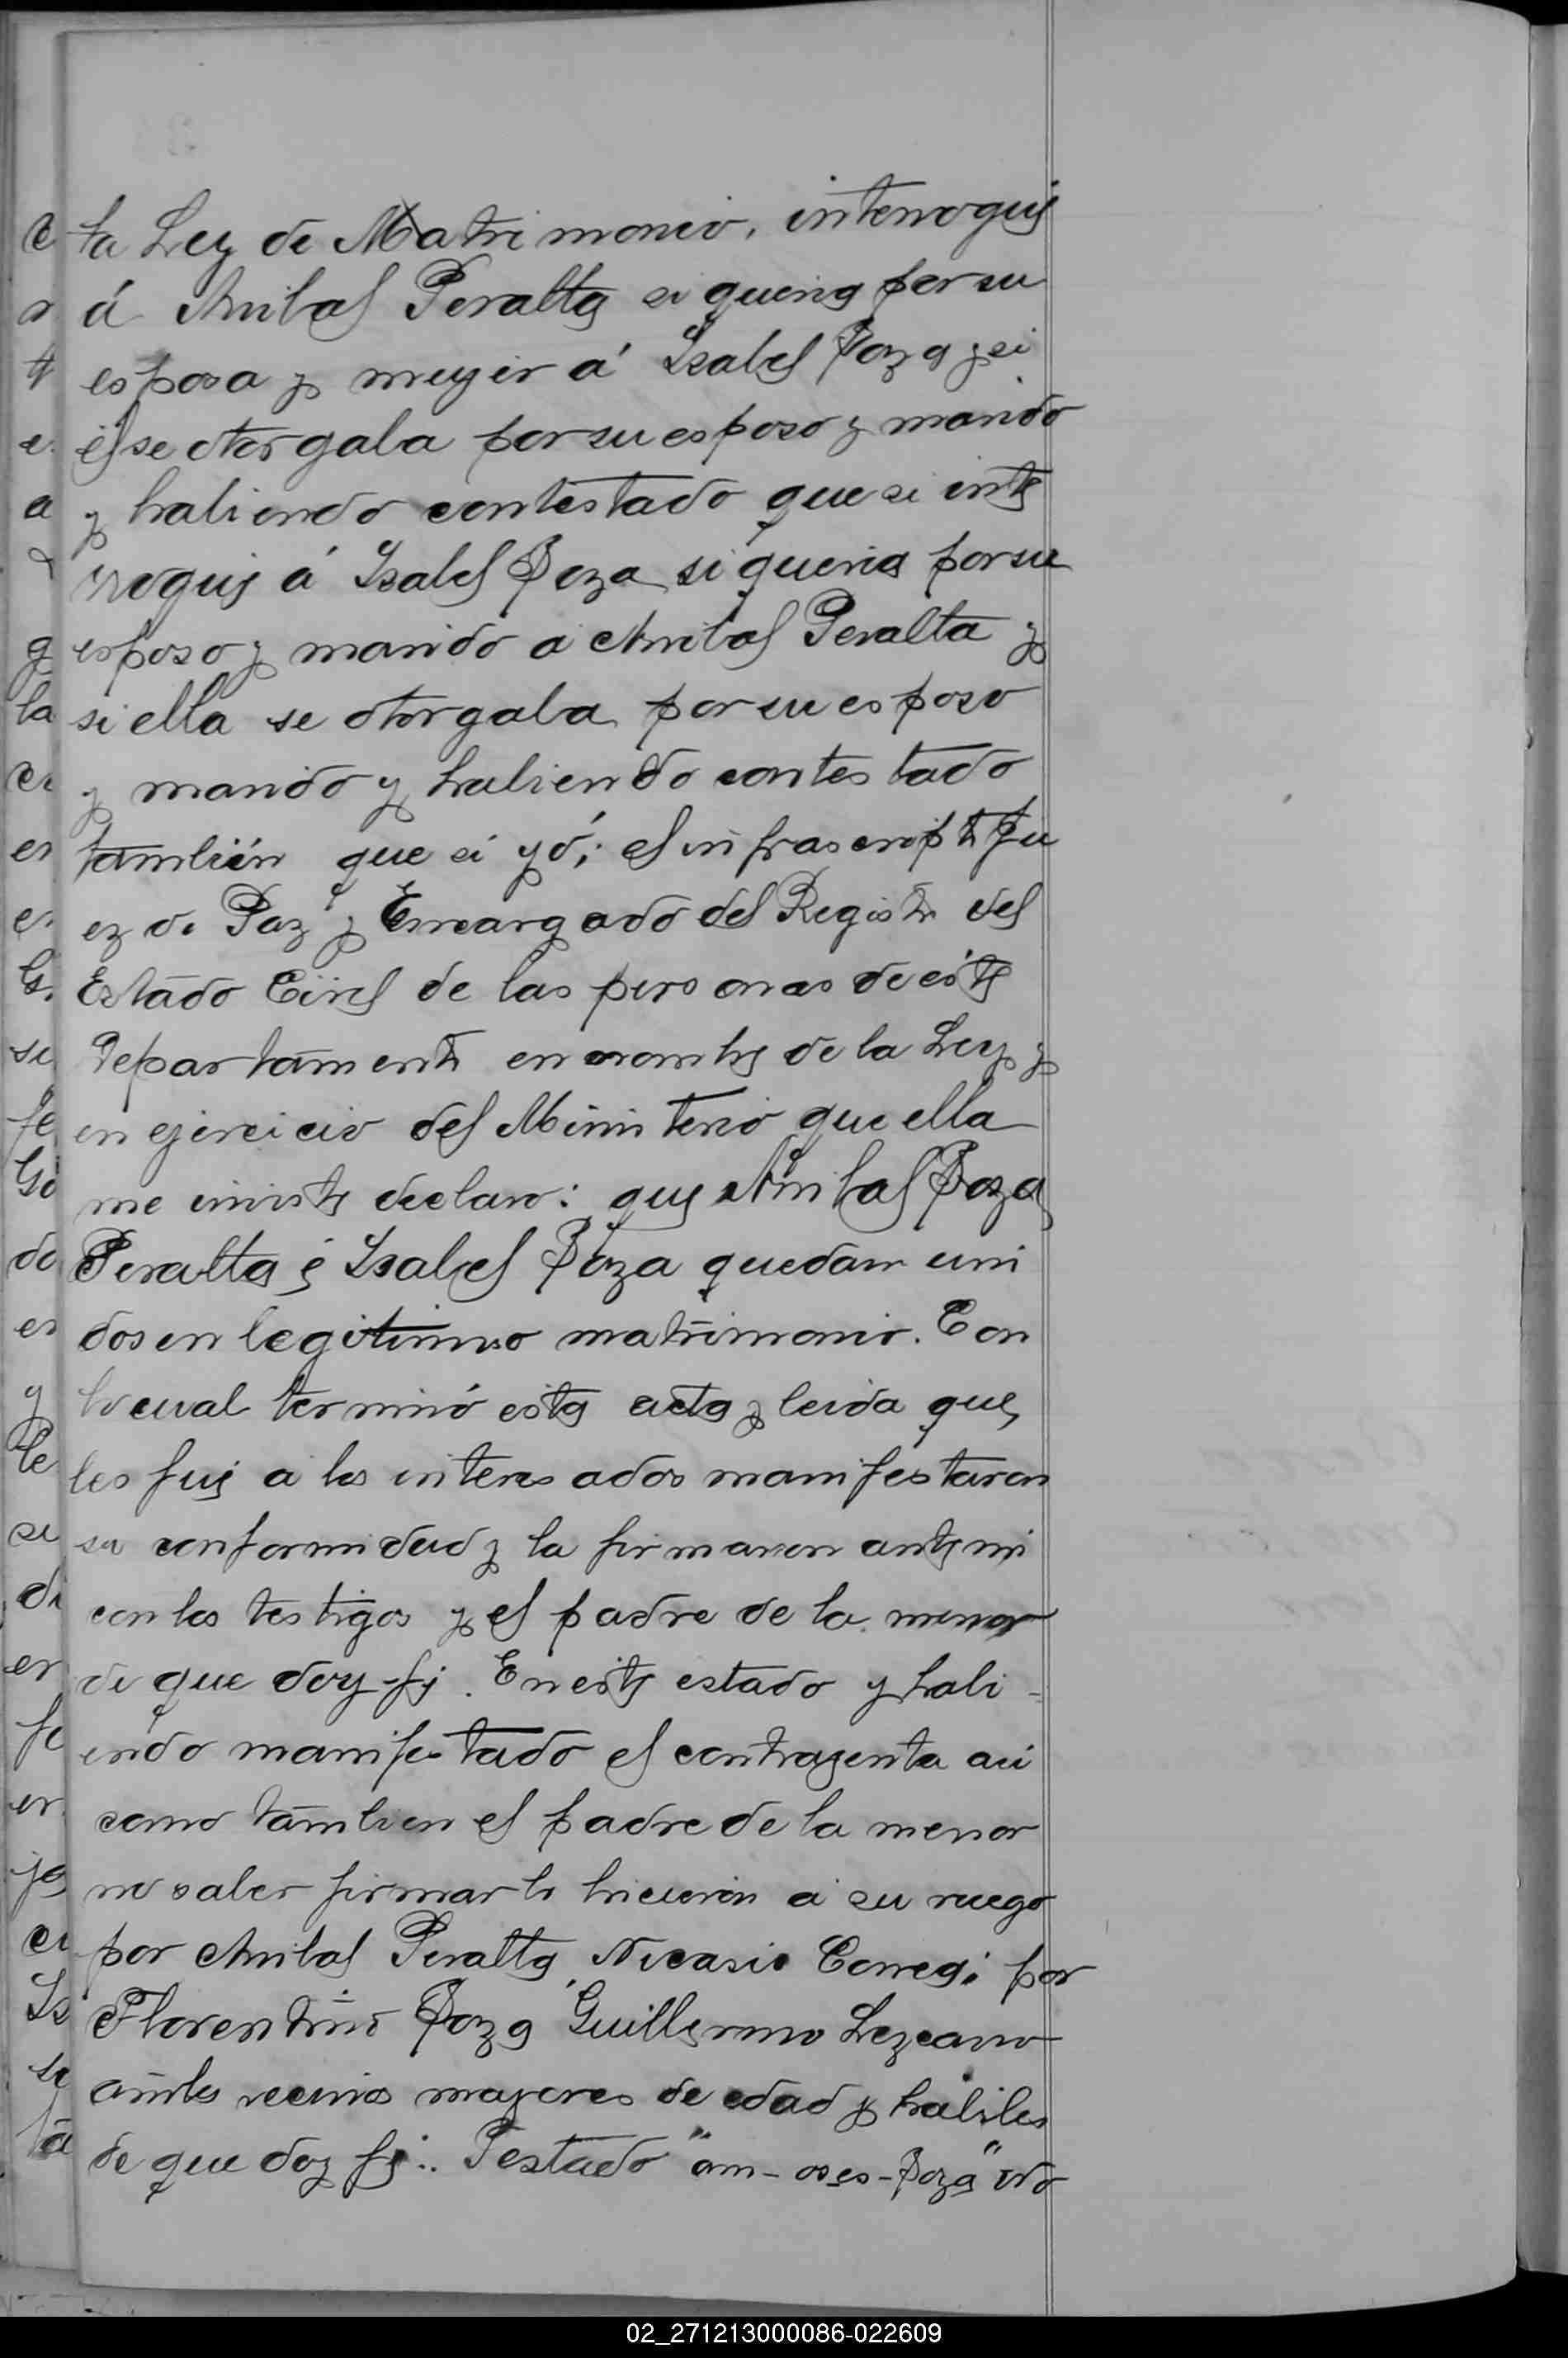 ta Ley de Matrimonio, interrogué
á Anibal Peralta si queria por su
esposa y mugér á Isabel Poza y si
él se otorgaba por su esposo y marido
y habiendo contestado que si inte
rrogué á Isabel Poza si queria por su
esposo y marido a Anibal Peralta y
si ella se otorgaba por su esposo
y marido y habiendo contestado
también que si yó; el infrascripto Ju
ez de Paz y Encargado del Registro del
Estado Civil de las personas de éste
Departamento en nombre de la Ley y
en ejercicio del Ministerio que ella
me inviste declaro: que Anibal Poza
Peralta é Isabel Poza quedan uni
dos en legitimo matrimonio. Con
lo cual terminó esta acta y leida que
les fué a los interesados manifestaron
su conformidad y la firmaron ante mi
con los testigos y el padre de la menor
de que doy fé. En este estado y habi-
endo manifestado el contrayente asi
como tambien el padre de la menor
no saber firmar lo hicierón á su ruego
por Anibal Peralta, Nicasio Corregi por
Florentino Poza Guillermo Lezcano
ambos vecinos mayores de edad y habiles
de que doy fé:. Testado "am-oses-Poza" no
02_271213000086-022609